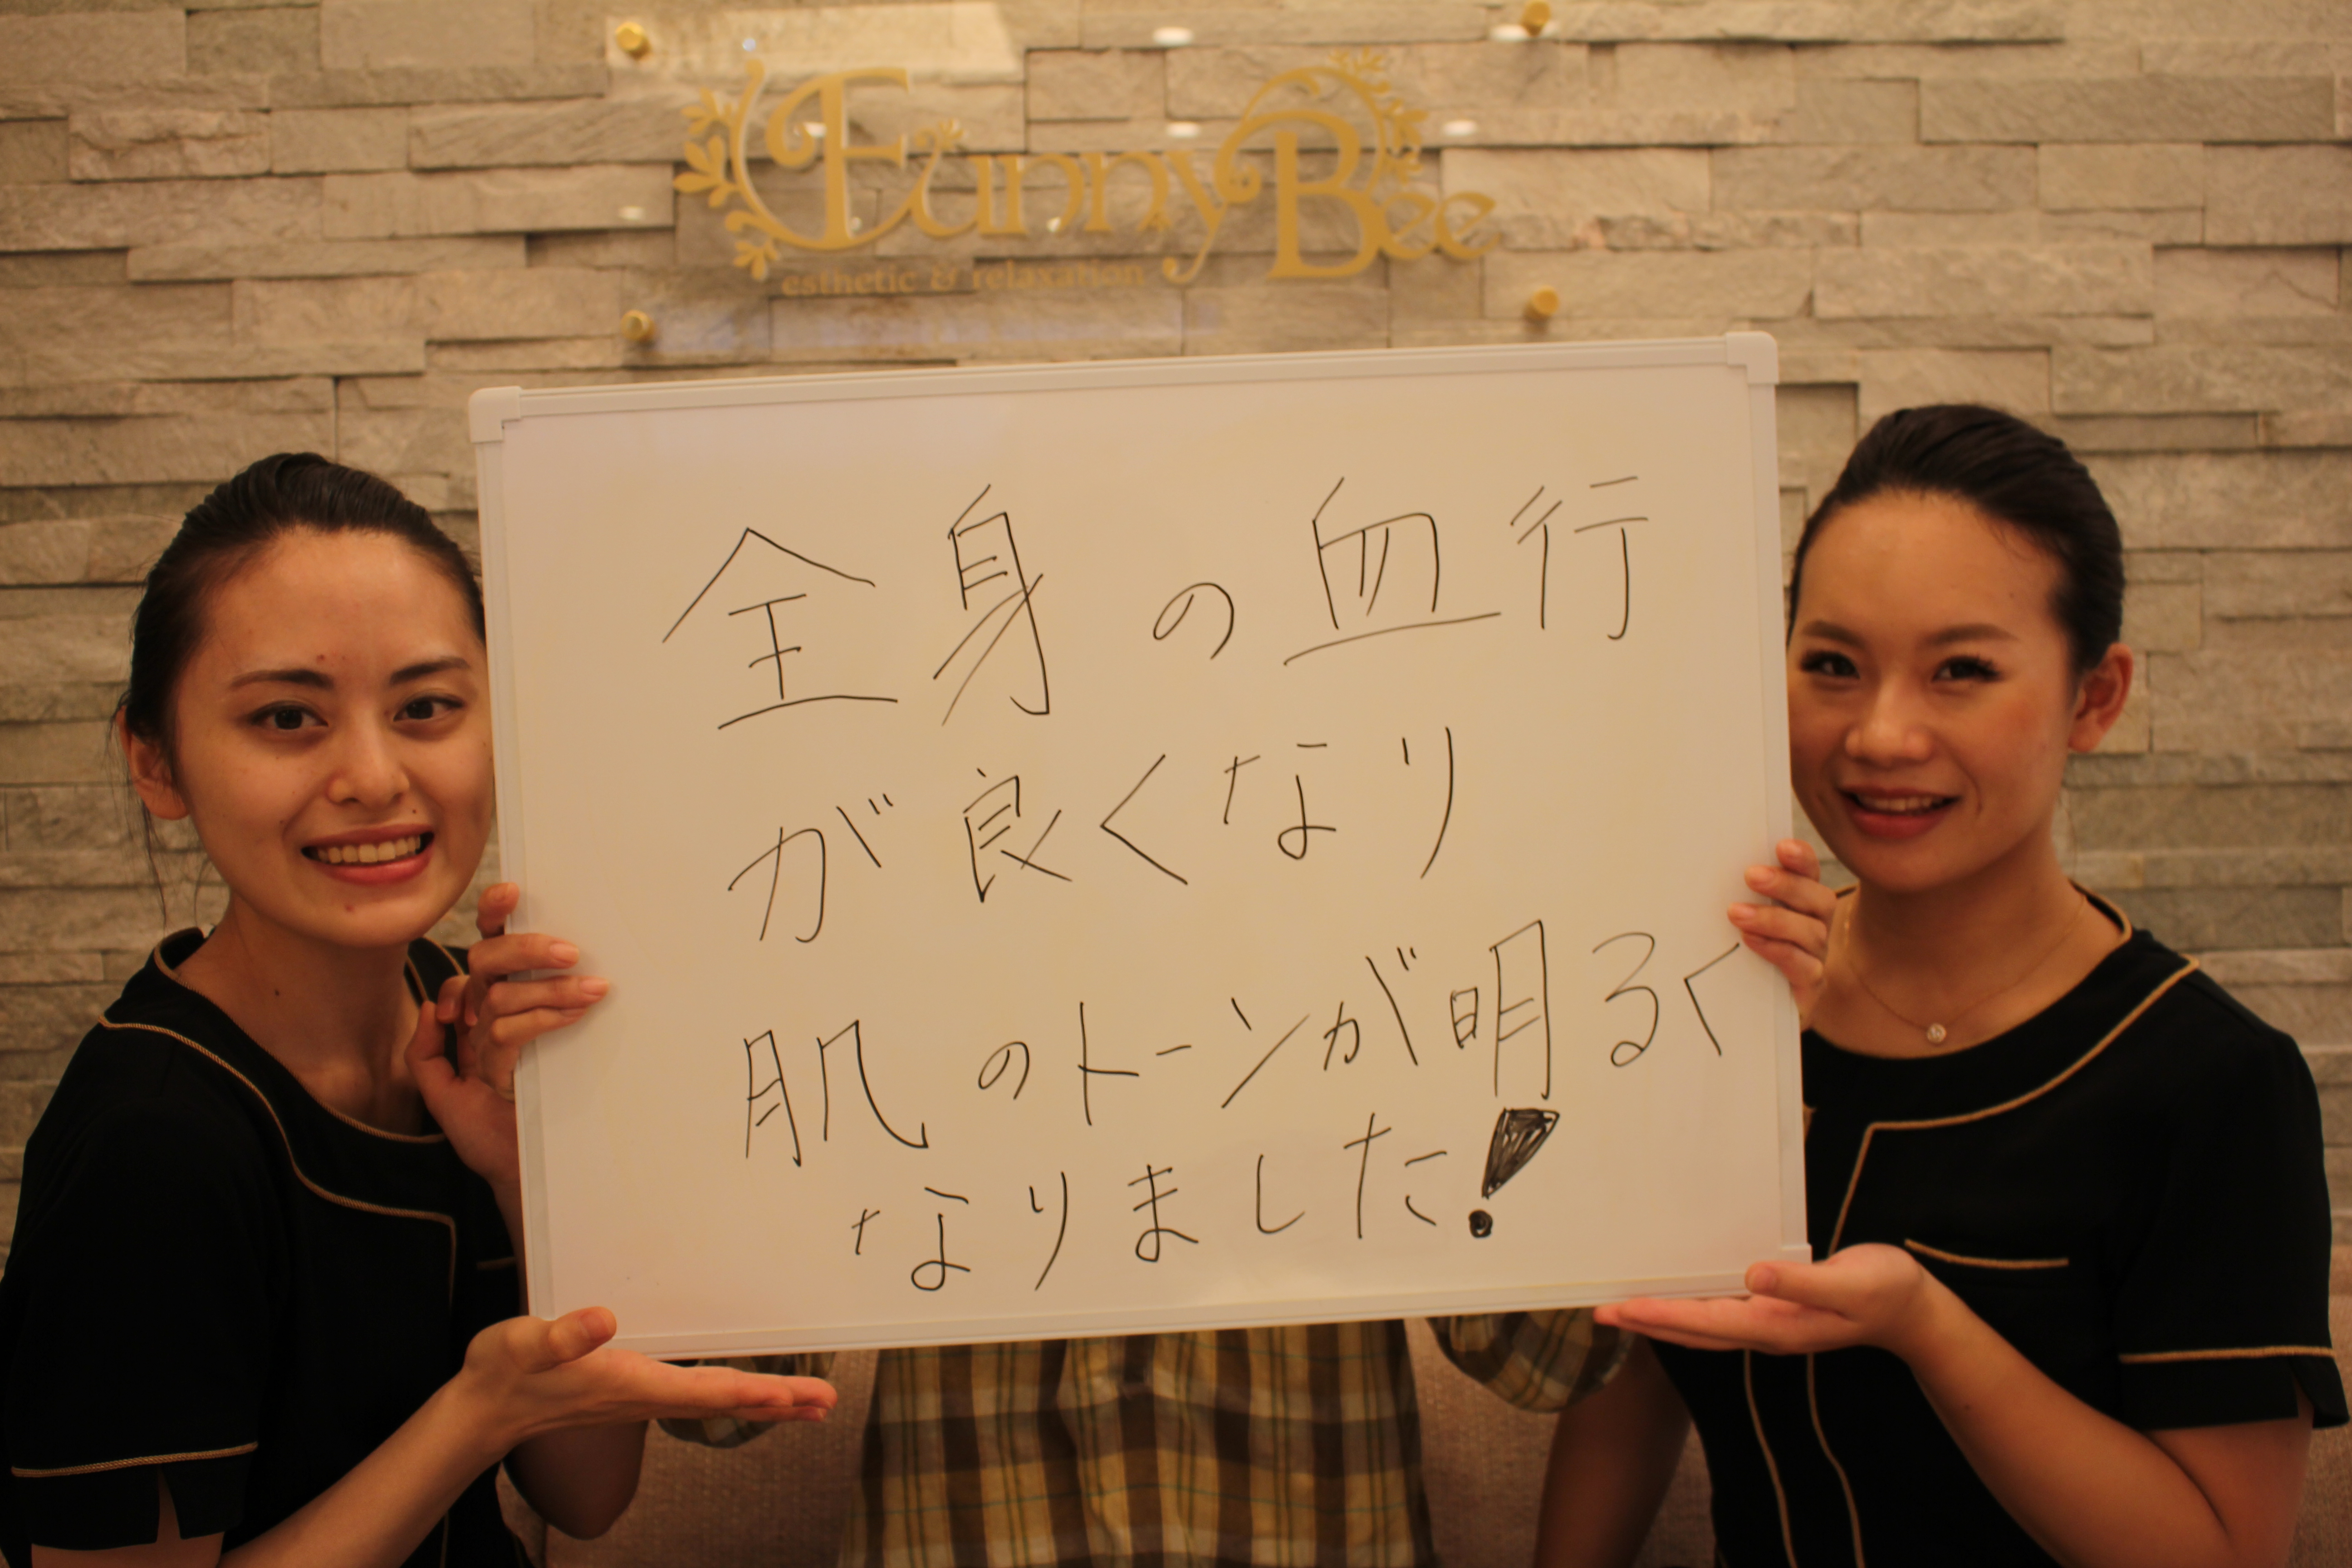 FunnyBee
esthetic & relaxation
全身の血行
が良くなり
肌のトーンが明るく
なりました!